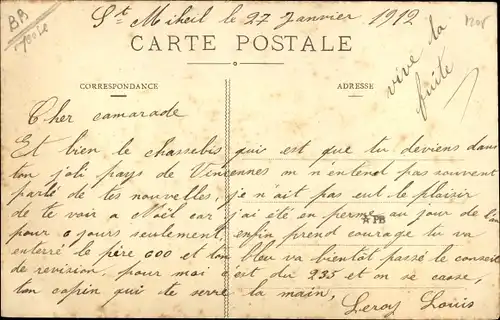 St Mihiel le 27 Janvier 1912
BB
CARTE POSTALE
vive la
fuite
CORRESPONDANCE
ADRESSE
Cher camarade
Et bien le chassebis quis est que tu deviens dans
ton joli pays de Vincennes m n'entend pas souvent
parlé de tes nouvelles, je n'ait pas eut le plaisir
de te voir a Noël car j'ai été en perme au jour de l'an
pour 6 jours seulement, enfin prend courage tu va
enterré le père 600 et ton bleu va bientôt passé le conseil
de revision. pour moi c'est du 235 et on se casse,
ton copin qui te serre la main,
Leroy Louis